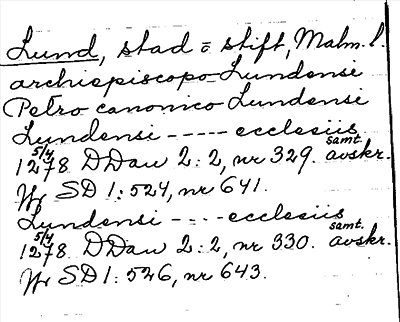 Lund, stad o stift, Malm. l.
archiepiscopo Lundensi
Petro canonico Lundensi
Lundensi ----- ecclesiis
5/4 1278 DDan 2:2, nr 329. samt. avskr.
Tr SD 1:524, nr 641.
Lundensi ---- ecclesiis
5/4 1278 DDan 2:2, nr 330. samt. avskr.
Tr SD 1:526, nr 643.